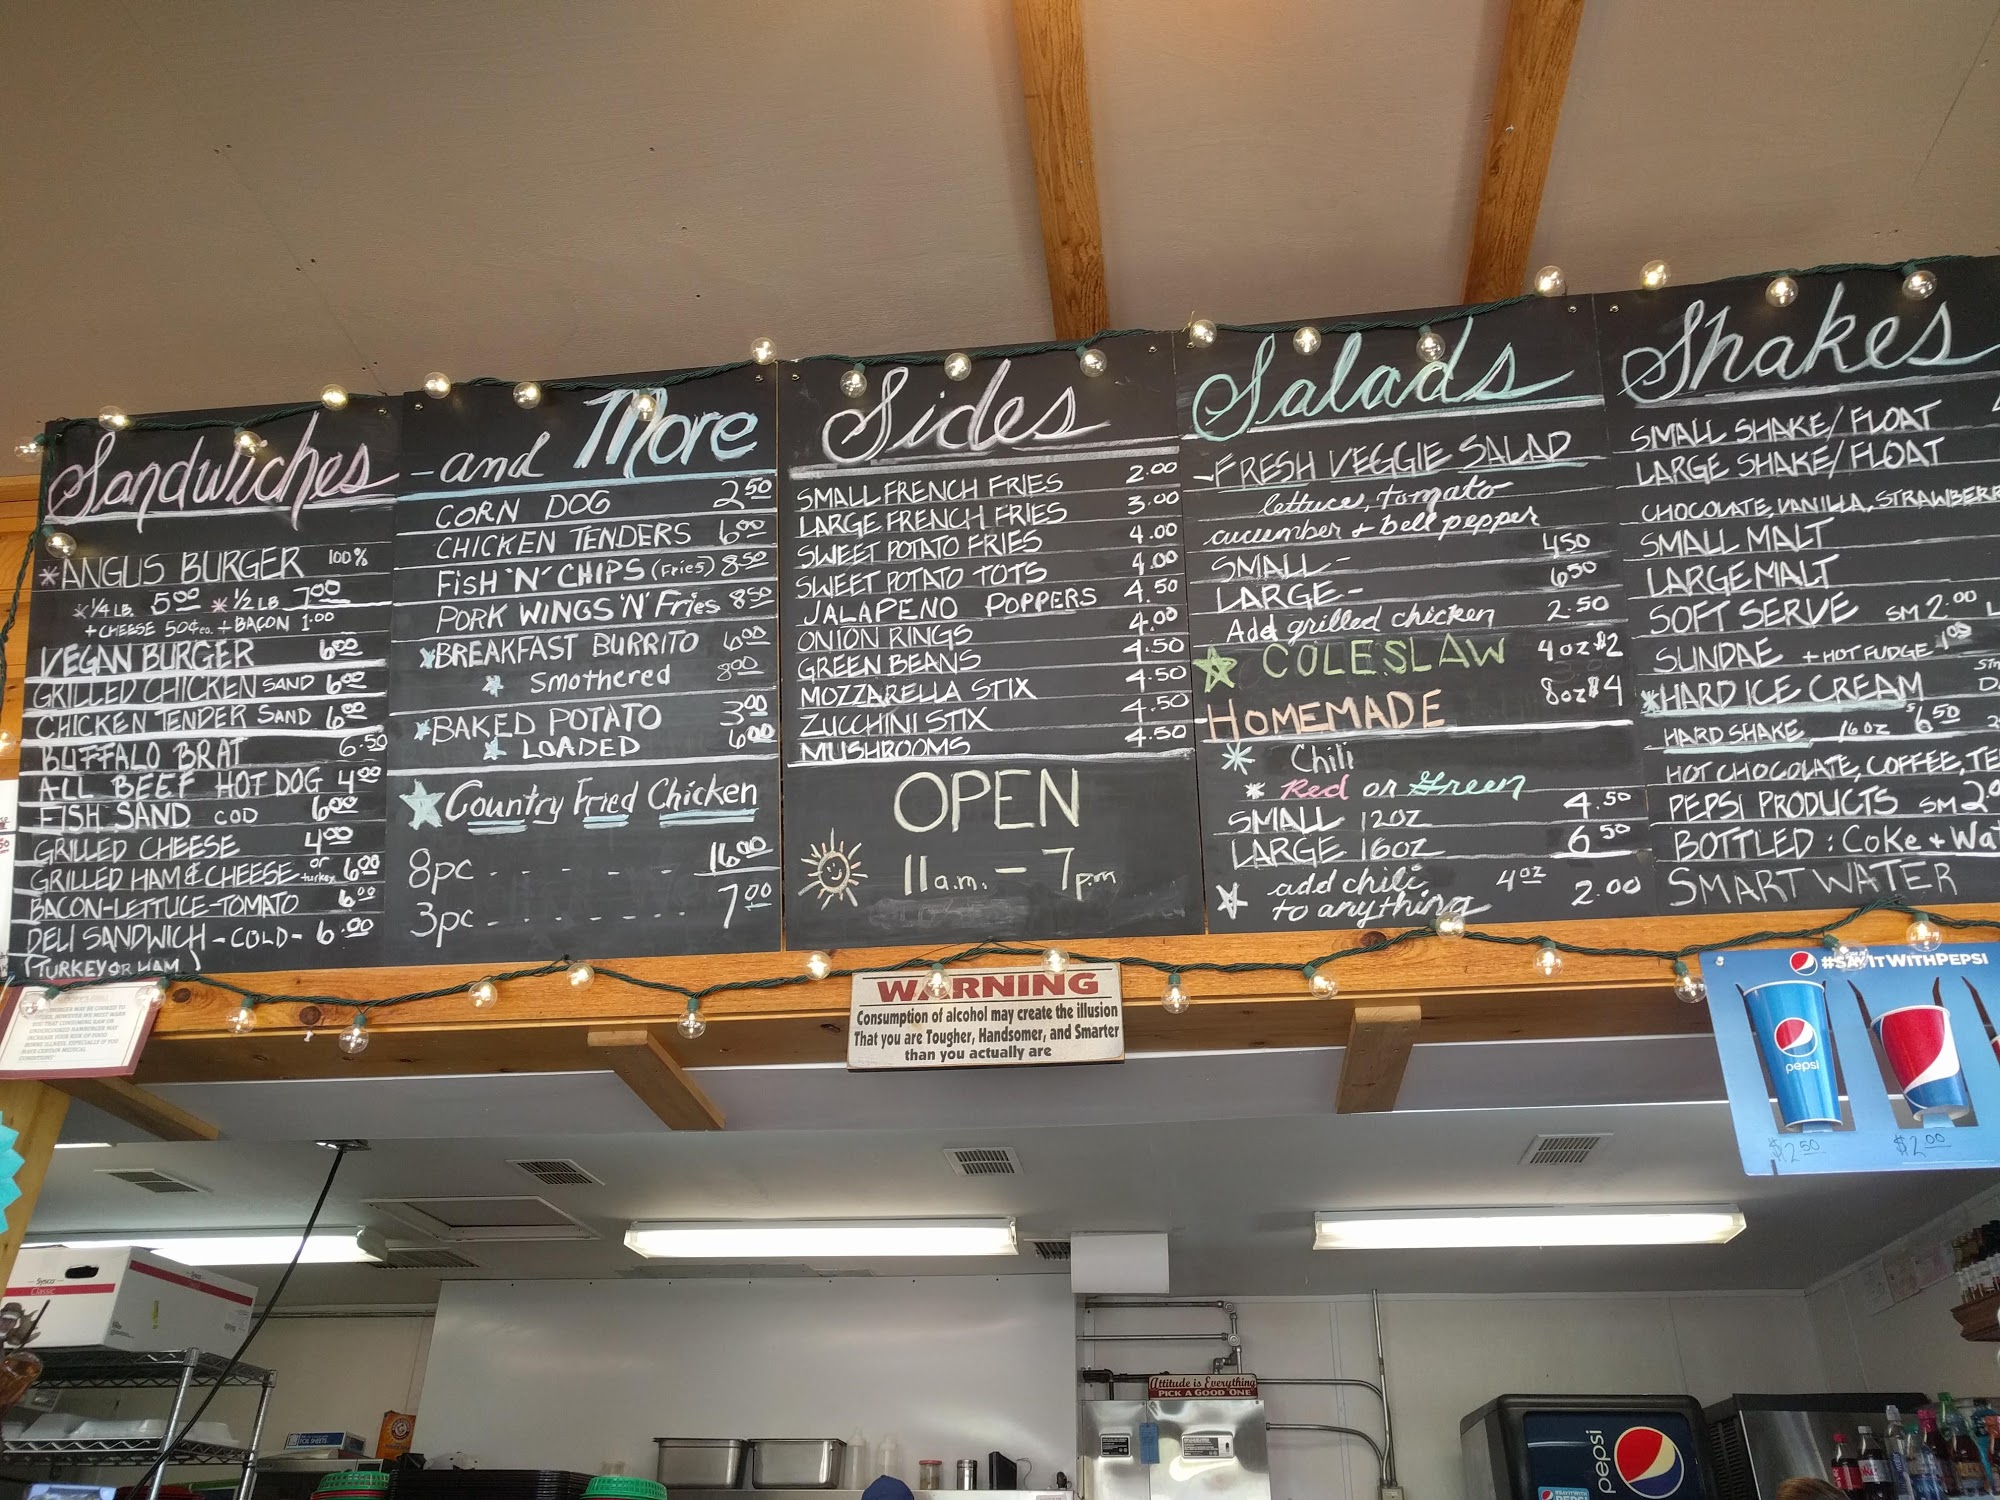 Sandwiches
*ANGUS BURGER 100%
*1/4 LB. 5.00 *1/2 LB. 7.00
+ CHEESE 50¢ ea. + BACON 1.00
VEGAN BURGER 6.00
GRILLED CHICKEN SAND 6.00
CHICKEN TENDER SAND 6.00
BUFFALO BRAT 6.50
ALL BEEF HOT DOG 4.00
FISH SAND COD 6.00
GRILLED CHEESE 4.00
GRILLED HAM & CHEESE or turkey 6.00
BACON-LETTUCE-TOMATO 6.00
DELI SANDWICH - COLD - 6.00
(TURKEY OR HAM)
-and More
CORN DOG 2.50
CHICKEN TENDERS 6.00
FISH 'N' CHIPS (Fries) 8.50
PORK WINGS 'N' Fries 8.50
*BREAKFAST BURRITO 6.00
* Smothered 8.00
*BAKED POTATO 3.00
* LOADED 6.00
Country Fried Chicken
8pc - - - - - 16.00
3pc - - - - - - - 7.00
Sides
SMALL FRENCH FRIES 2.00
LARGE FRENCH FRIES 3.00
SWEET POTATO FRIES 4.00
SWEET POTATO TOTS 4.00
JALAPENO POPPERS 4.50
ONION RINGS 4.00
GREEN BEANS 4.50
MOZZARELLA STIX 4.50
ZUCCHINI STIX 4.50
MUSHROOMS 4.50
OPEN
11a.m. - 7p.m
Salads
-FRESH VEGGIE SALAD
lettuce, tomato
cucumber + bell pepper
SMALL - 4.50
LARGE - 6.50
Add grilled chicken 2.50
COLESLAW 4oz $2
8oz $4
HOMEMADE
* Chili
* Red or Green
SMALL 12oz 4.50
LARGE 16oz 6.50
add chili 4oz 2.00
to anything
Shakes
SMALL SHAKE/FLOAT
LARGE SHAKE/FLOAT
CHOCOLATE, VANILLA, STRAWBERR
SMALL MALT
LARGE MALT
SOFT SERVE SM 2.00 L
SUNDAE + HOT FUDGE 1.00
*HARD ICE CREAM
HARD SHAKE 16oz $6.50
HOT CHOCOLATE, COFFEE, TE
PEPSI PRODUCTS SM 2.0
BOTTLED: COKE + Wat
SMART WATER
WARNING
Consumption of alcohol may create the illusion
That you are Tougher, Handsomer, and Smarter
than you actually are
#SAYITWITHPEPSI
pepsi
$2.50 $2.00
Sysco
Classic
Attitude is Everything
PICK A GOOD ONE
FOIL SHEETS
pepsi
#SAYITWITH
PEPSI